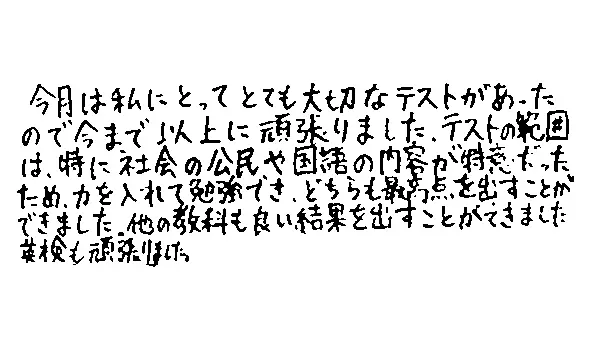 今月は私にとってとても大切なテストがあった
ので今まで以上に頑張りました。テストの範囲
は、特に社会の公民や国語の内容が得意だった
ため、力を入れて勉強でき、どちらも最高点を出すことが
できました。他の教科も良い結果を出すことができました
英検も頑張りました。